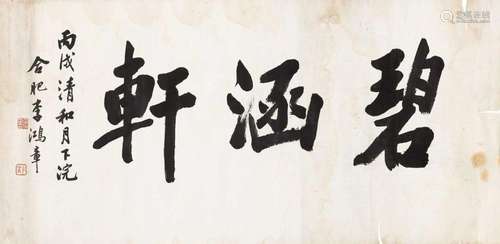 碧涵軒
丙戌清和月下浣
合肥李鴻章